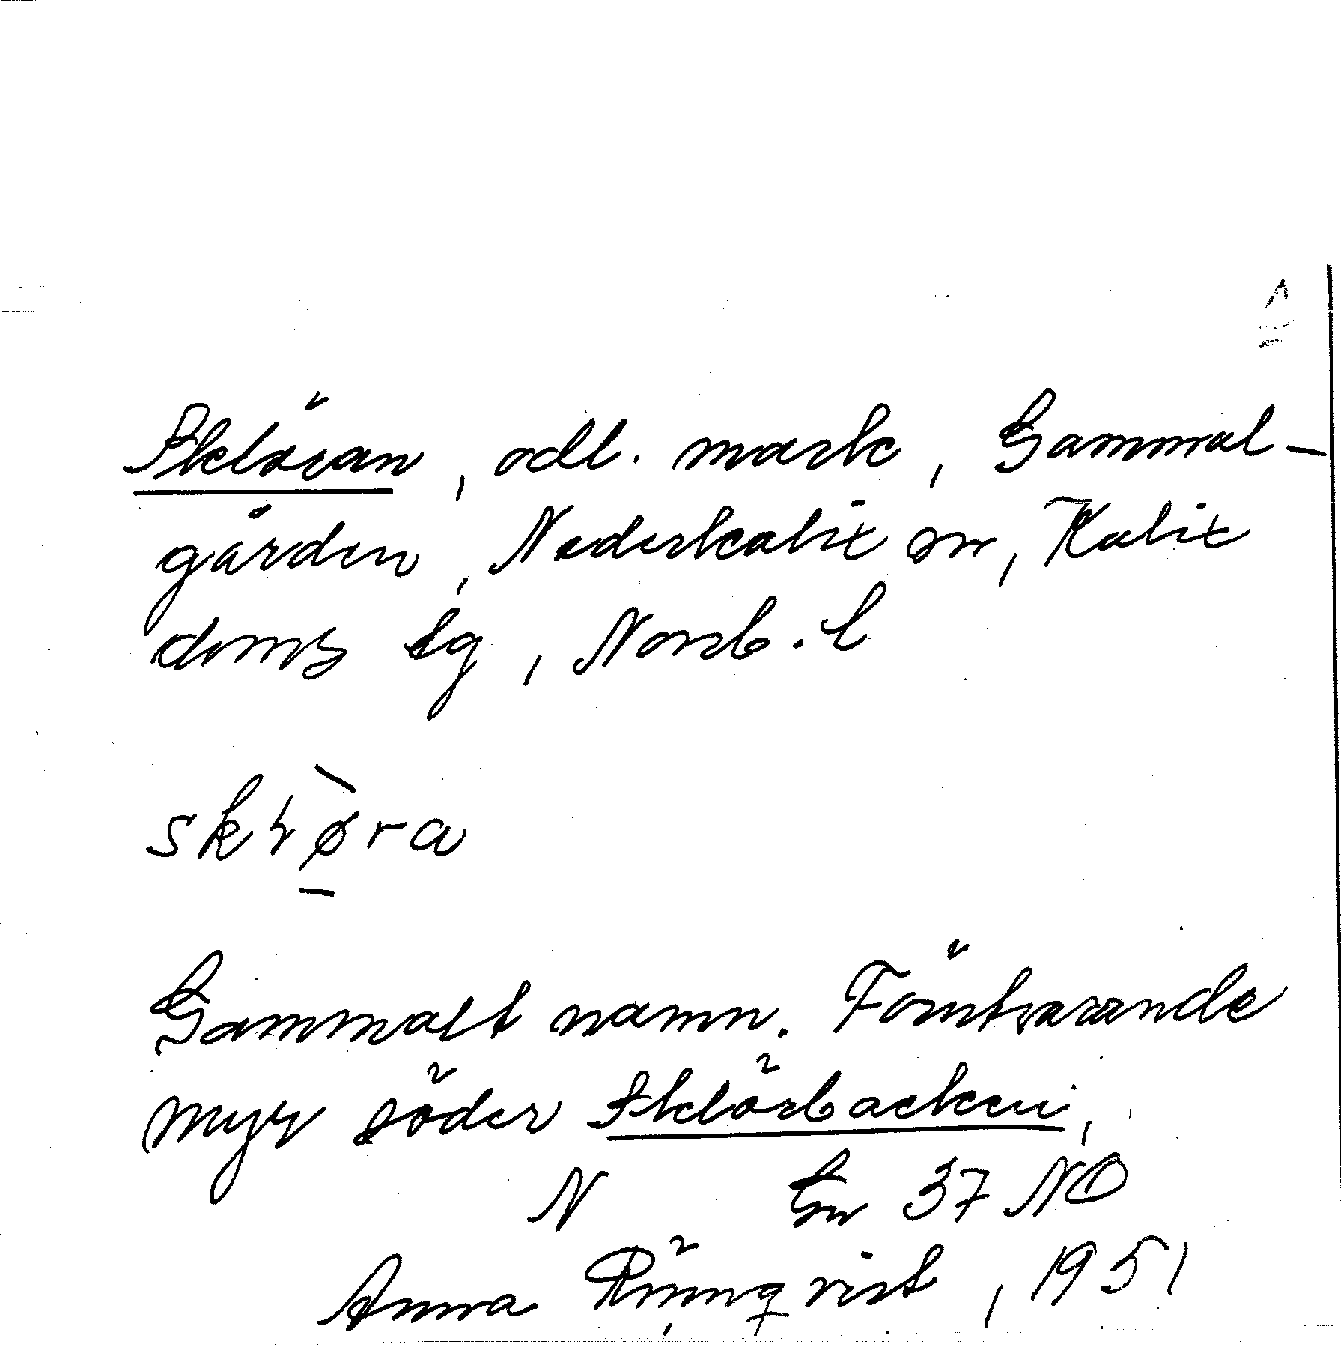 Sklöran, odl. mark, Gammal-
gården, Nederkalix sn, Kalix
doms lg, Norrb. l
Gammalt namn. Förutvarande
myr söder Sklörbacken,
N Gn 37 NO
Anna Rönnqvist, 1951